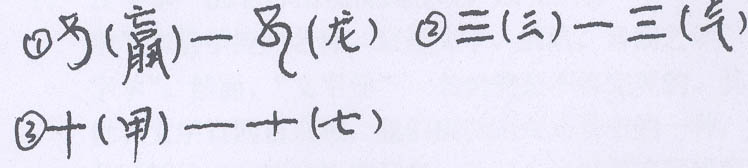 ①(赢)—(龙) ②三(三)—三(气)
③十(甲)—十(七)